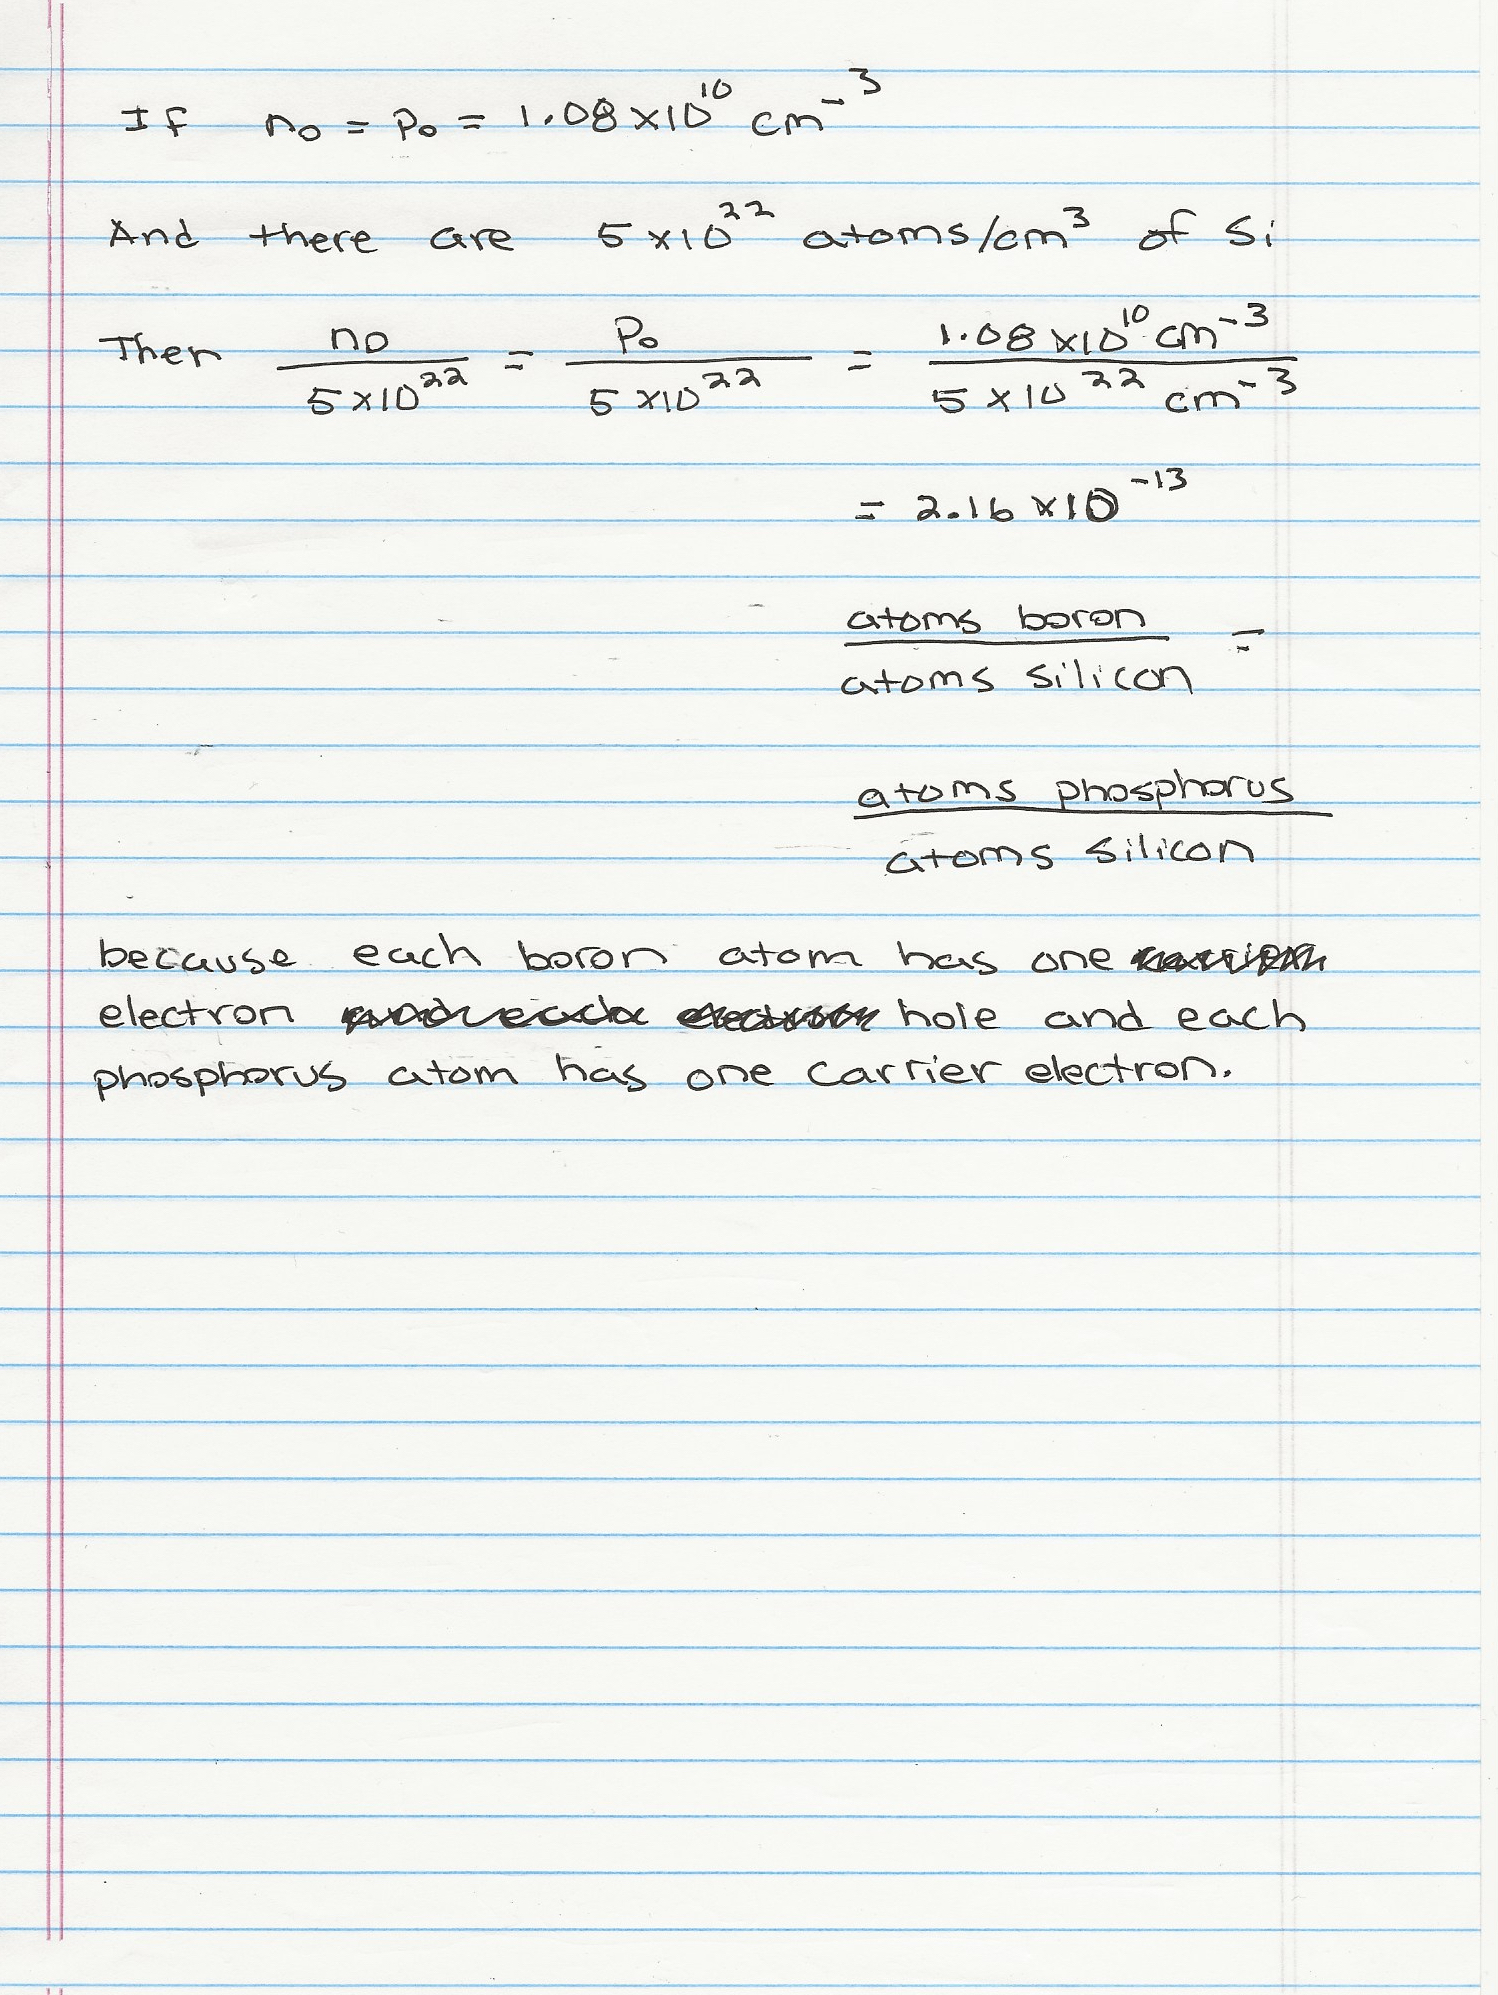 If n₀ = p₀ = 1.08 x10¹⁰ cm⁻³
And there are 5 x10²² atoms/cm³ of Si
Then n₀/5x10²² = p₀/5 x10²² = 1.08 x10¹⁰ cm⁻³/5 x 10²² cm⁻³
= 2.16 x10⁻¹³
atoms boron/atoms silicon =
atoms phosphorus/atoms silicon
because each boron atom has one
electron hole and each
phosphorus atom has one carrier electron.